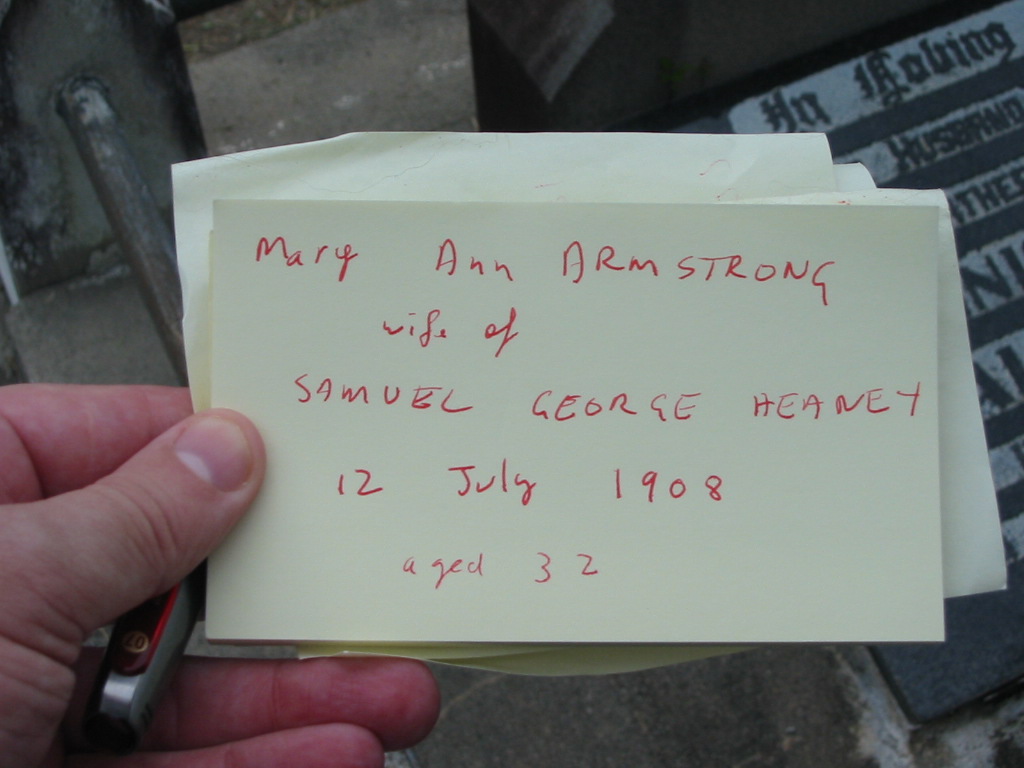 Mary Ann ARMSTRONG
wife of
SAMUEL GEORGE HEANEY
12 July 1908
aged 32
In Loving
HUSBAND
07